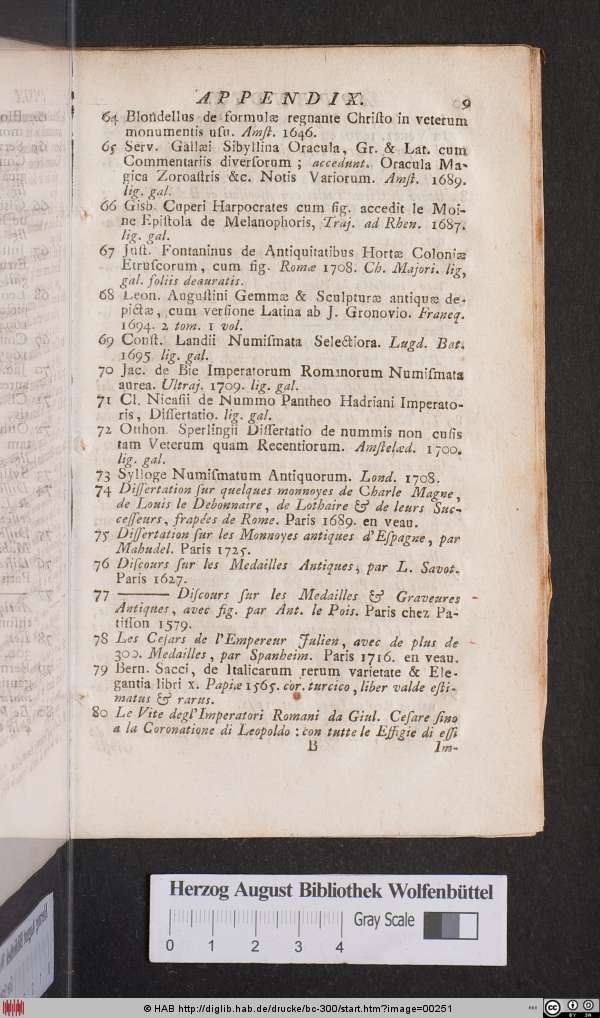 APPENDIX. 9
64 Blondellus de formulæ regnante Chriſto in veterum
monumentis uſu. Amſt. 1646.
65 Serv. Gallæi Sibyllina Oracula, Gr. & Lat. cum
Commentariis diverſorum ; accedunt. Oracula Ma-
gica Zoroaſtris &c. Notis Variorum. Amſt. 1689.
lig. gal.
66 Gisb. Cuperi Harpocrates cum fig. accedit le Moi-
ne Epiſtola de Melanophoris, Traj. ad Rhen. 1687.
lig. gal.
67 Juſt. Fontaninus de Antiquitatibus Hortæ Coloniæ
Etruſcorum, cum fig. Romæ 1708. Ch. Majori. lig,
gal. foliis deauratis.
68 Leon. Auguſtini Gemmæ & Sculpturæ antiquæ de-
pictæ, cum verſione Latina ab J. Gronovio. Franeq.
1694. 2 tom. 1 vol.
69 Conſt. Landii Numiſmata Selectiora. Lugd. Bat.
1695. lig. gal.
70 Jac. de Bie Imperatorum Romanorum Numiſmata
aurea. Ultraj. 1709. lig. gal.
71 Cl. Nicaſii de Nummo Pantheo Hadriani Imperato-
ris, Diſſertatio. lig. gal.
72 Otthon. Sperlingii Diſſertatio de nummis non cuſis
tam Veterum quam Recentiorum. Amſtelæd. 1700.
lig. gal.
73 Sylloge Numiſmatum Antiquorum. Lond. 1708.
74 Diſſertation ſur quelques monnoyes de Charle Magne,
de Louis le Debonnaire, de Lothaire & de leurs Suc-
ceſſeurs, frapées de Rome. Paris 1689. en veau.
75 Diſſertation ſur les Monnoyes antiques d'Eſpagne, par
Mahudel. Paris 1725.
76 Diſcours ſur les Medailles Antiques, par L. Savot.
Paris 1627.
77 ——— Diſcours ſur les Medailles & Graveures
Antiques, avec fig. par Ant. le Pois. Paris chez Pa-
tiſſon 1579.
78 Les Ceſars de l'Empereur Julien, avec de plus de
300. Medailles, par Spanheim. Paris 1716. en veau.
79 Bern. Sacci, de Italicarum rerum varietate & Ele-
gantia libri x. Papiæ 1565. cor. turcico, liber valde eſti-
matus & rarus.
80 Le Vite degl'Imperatori Romani da Giul. Ceſare ſino
a la Coronatione di Leopoldo : con tutte le Effigie di eſſi
B Im-
Herzog August Bibliothek Wolfenbüttel
Gray Scale
0 1 2 3 4
© HAB http://diglib.hab.de/drucke/bc-300/start.htm?image=00251